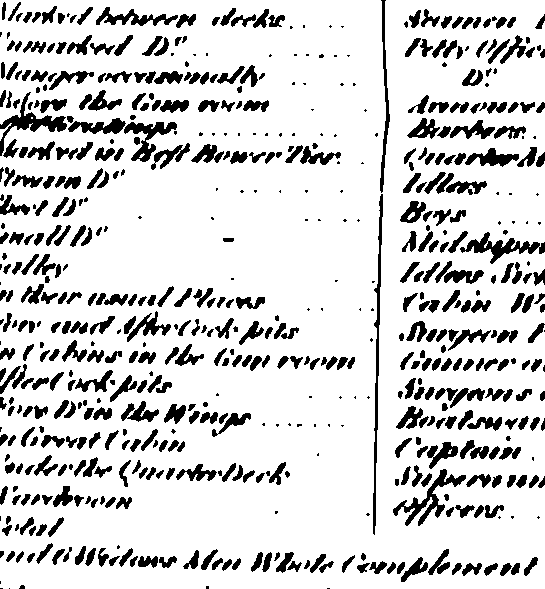 Marked between decks
Unmarked Do
Manger occasionally
Before the Gun room
Marked in Best Bower Tier
Stream Do
Sheet Do
Small Do
Galley
In their usual Places
Fore and After Cock pits
In Cabins in the Gun room
After Cock pits
Fore Do in the Wings
In Great Cabin
Under the Quarter Deck
Wardroom
Total
and 6 Widows Men Whole Complement
Seamen
Petty Offic
Do
Barbers
Quarter M
Idlers
Boys
Midshipm
Idlers Sick
Cabin W
Surgeon
Gunner a
Surgeons
Boatswain
Captain
Supernum
Officers